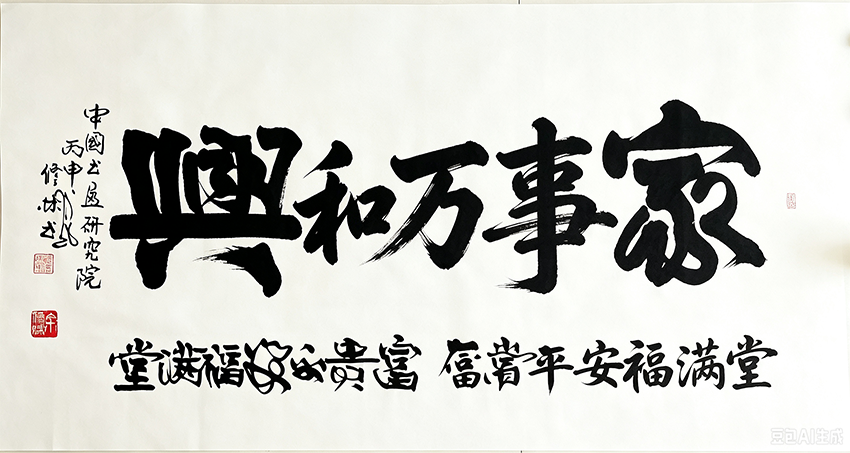 家事万和興
堂满福安平當 富貴福满堂
中國书研究院
丙申
修书
豆包AI生成